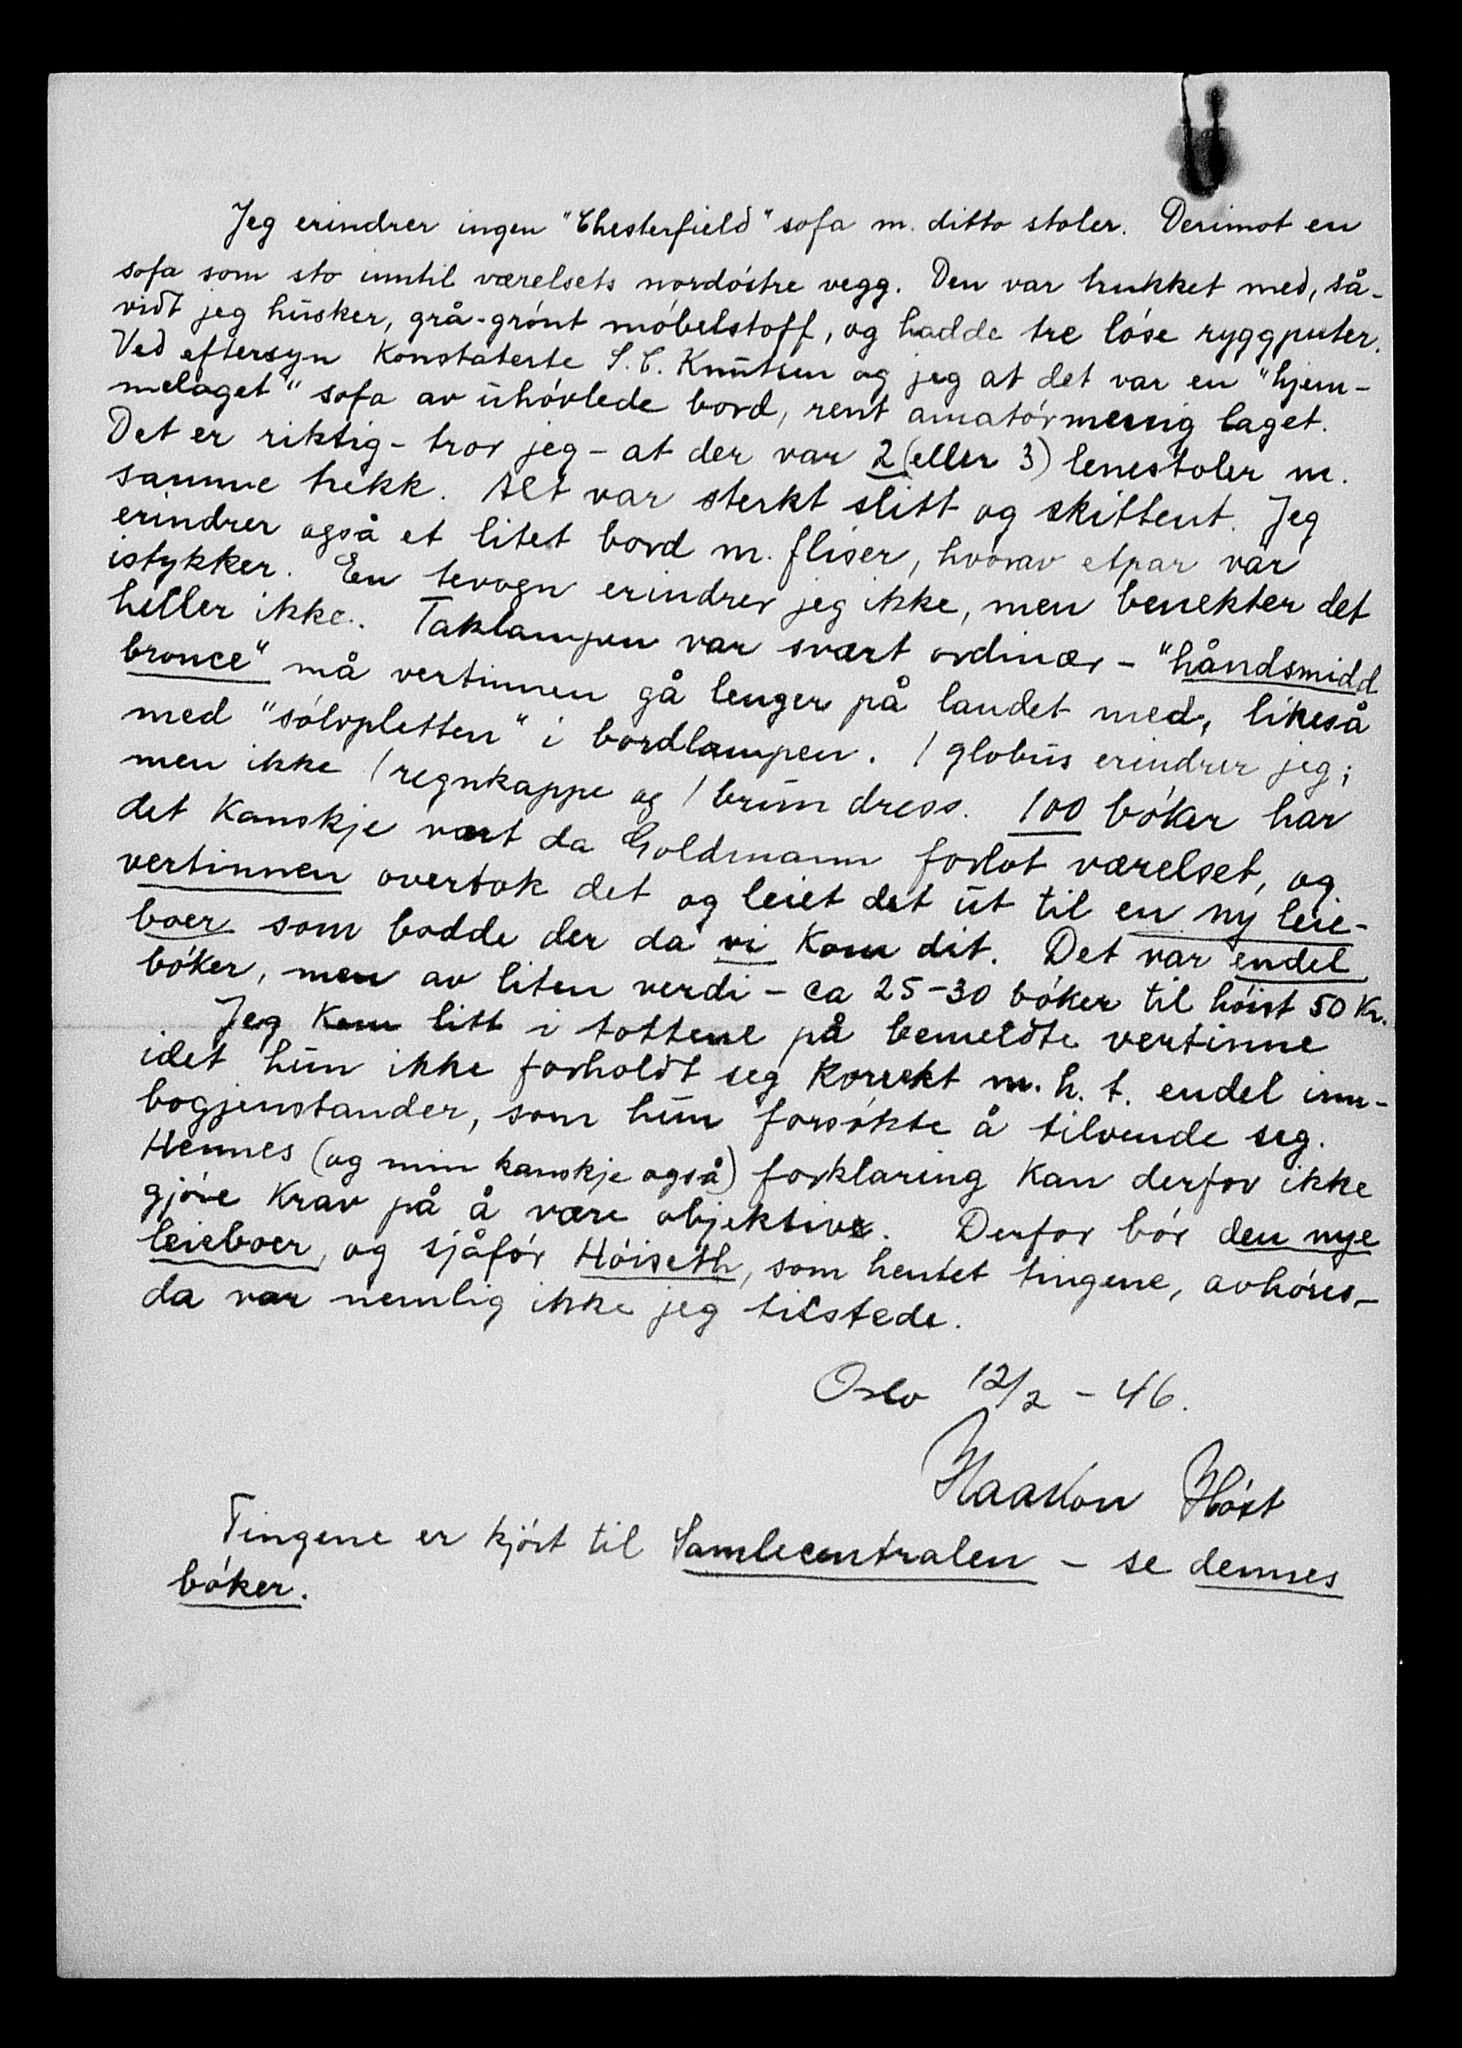 Jeg erindrer ingen "Chesterfield" sofa m. ditto stoler. Derimot en
sofa som sto inntil værelsets nordóstre vegg. Den var trukket med, så-
vidt jeg husker, grå-grónt móbelstoff, og hadde tre lóse ryggputer.
Ved eftersyn konstaterte S. C. Knutsen og jeg at det var en "hjem-
melaget" sofa av uhóvlede bord, rent amatórmessig laget.
Det er riktig - tror jeg - at der var 2 (eller 3) lenestoler m.
samme trekk. Alt var sterkt slitt og skittent. Jeg
erindrer også et litet bord m. fliser, hvorav etpar var
istykker. En tevogn erindrer jeg ikke, men benekter det
heller ikke. Taklampen var svært ordinær - "håndsmidd
bronce" må vertinnen gå lenger på landet med, likeså
med "sólvpletten" i bordlampen. 1 globus erindrer jeg;
men ikke 1 regnkappe og 1 brun dress. 100 bóker har
det kanskje vært da Goldmann forlot værelset, og
vertinnen overtok det og leiet det ut til en ny leie-
boer som bodde der da vi kom dit. Det var endel
bóker, men av liten verdi - ca 25-30 bóker til hóist 50 kr.
Jeg kom litt i tottene på bemeldte vertinne
idet hun ikke forholdt seg korrekt m. h. t. endel inn-
bogjenstander, som hun forsókte å tilvende seg.
Hennes (og min kanskje også) forklaring kan derfor ikke
gjóre krav på å være objektive. Derfor bór den nye
leieboer, og sjåfór Hóiseth, som hentet tingene, avhóres, -
da var nemlig ikke jeg tilstede.
Oslo 12/2 - 46.
Haakon Hóst
Tingene er kjórt til Samlecentralen - se dennes
bóker.